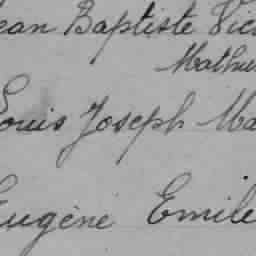 Jean Baptiste Vic
Mathu
Louis Joseph Ma
Eugène Emile